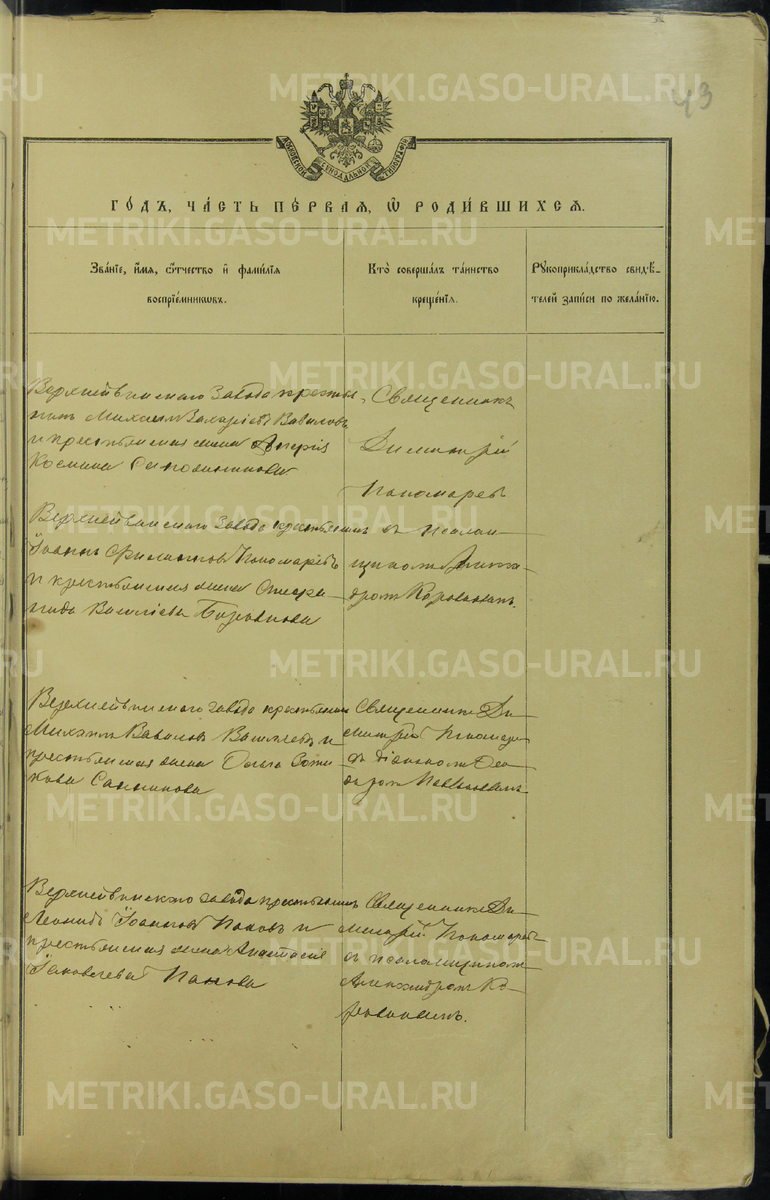 43
МОСКОВСКОЙ СѴНОДАЛЬНОЙ ТИПОГРАФІИ
ГО́ДЪ, ЧА́СТЬ ПЕ́РВАЯ, Ѡ҆ РОДИ́ВШИХСѦ.
Зва́нїе, и҆́мѧ, ѻ҆́тчество и҆ фами́лїѧ
воспрїе́мникѡвъ.
Кто̀ соверша́лъ та́инство
креще́нїѧ.
Рꙋкоприкла́дство свидѣ́-
телей за́писи по жела́нїю.
Верхнейвинскаго завода крестья-
нинъ Михаилъ Захаріевъ Вавиловъ
и крестьянская жена
Космина
Священникъ
Димитрій
Пономаревъ
Верхнейвинскаго завода крестьянинъ
Іоаннъ Филипповъ Пономаревъ
и крестьянская жена
Василіева
съ псалом-
щикомъ Алекса-
ндромъ Коровинымъ.
Верхнейвинскаго завода крестьянинъ
Михаилъ Вавиловъ Васильевъ и
крестьянская жена Ольга
Санникова
Священникъ Ди-
митрій Пономарев
съ діакономъ Ѳео-
Верхнейвинскаго завода крестьянинъ
Леонидъ Іоанновъ Пановъ и
крестьянская жена Анастасія
Іаковлева Панова
Священникъ Ди-
митрій Пономаревъ
съ псаломщикомъ
Александромъ Ко-
ровинымъ.
METRIKI.GASO-URAL.RU